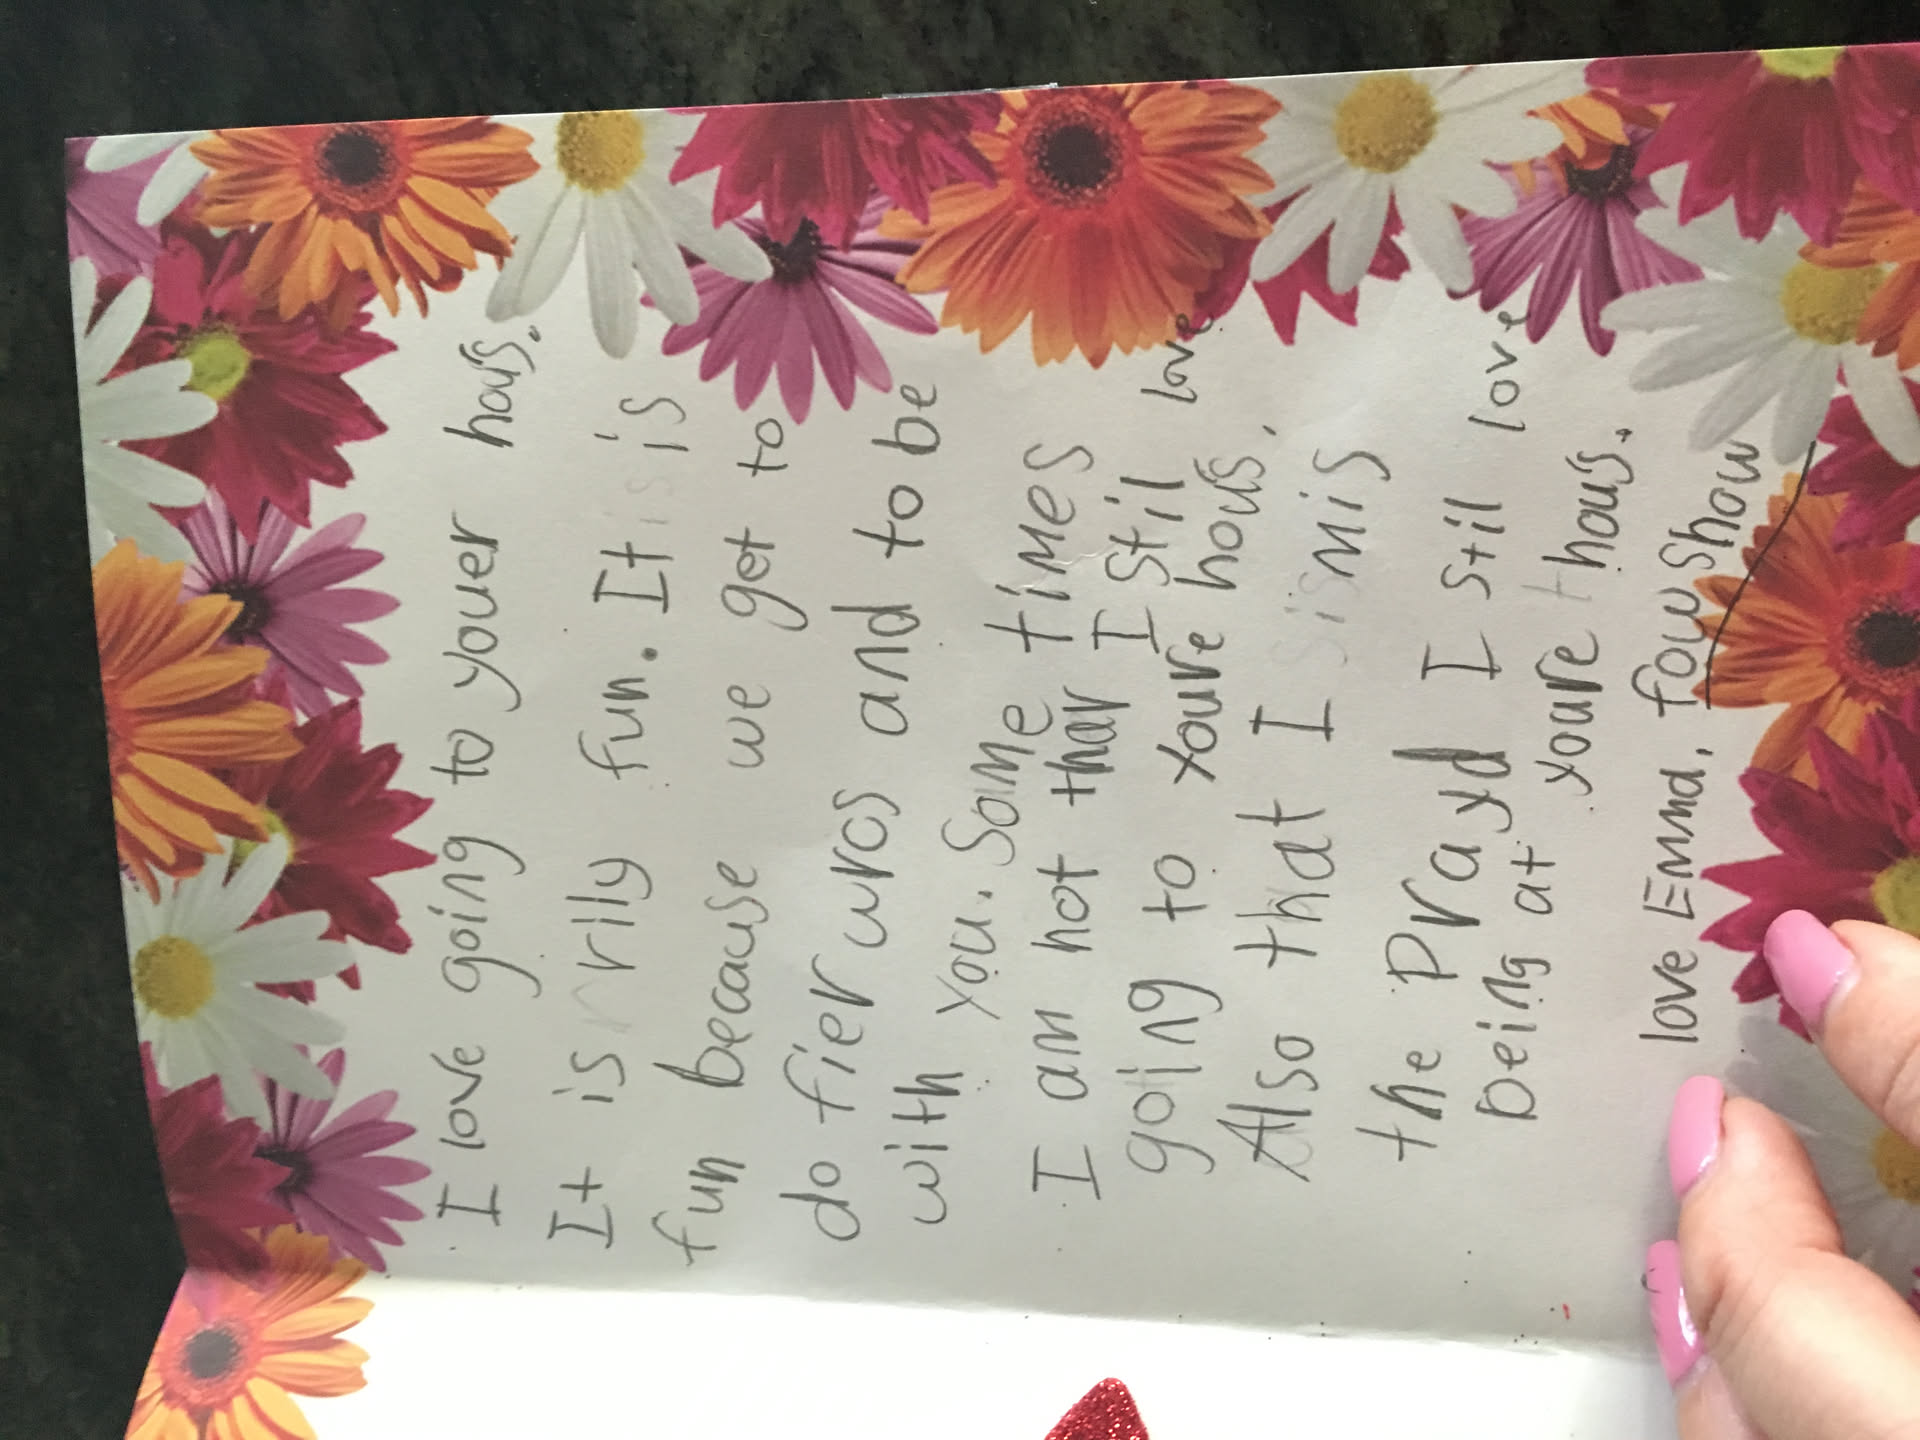 I love going to youer hous.
It is rily fun. It is
fun because we get to
do fier wros and to be
with you. Some times
I am not thar I stil love
going to youre hous.
Also that I mis
the Prayd I stil love
being at youre hous.
love Emma, fowshow